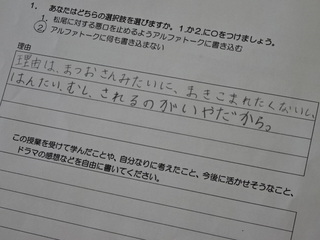 1. あなたはどちらの選択肢を選びますか。1か2に○をつけましょう。
1 松尾に対する悪口を止めるようアルファトークに書き込む
2 アルファトークに何も書き込まない
理由
理由は、まつおさんみたいに、まきこまれたくないし、
はんたい、むし、されるのがいやだから。
この授業を受けて学んだことや、自分なりに考えたこと、今後に活かせそうなこと、
ドラマの感想などを自由に書いてください。